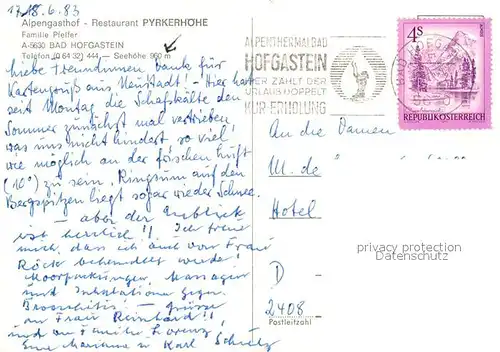 17./18.6.83
Alpengasthof - Restaurant PYRKERHÖHE
Familie Pfeffer
A-5630 BAD HOFGASTEIN
Telefon (0 64 32) 444 — Seehöhe 960 m
Liebe Freundinnen! Dank für
Kartengruß aus Neustadt! - Hier hat
seit Montag die Schafskälte den
Sommer zunächst mal vertrieben,
was uns nicht hindert, so viel
wie möglich an der frischen Luft
(10°) zu sein. Ringsum auf den
Bergspitzen liegt sogar wieder Schnee.
aber der Ausblick
ist herrlich!! Ich freue
mich, daß ich auch von Frau
Röck behandelt werde!
Moorpackungen, Massagen
und Inhalationen gegen
Bronchitis — Grüsse
an Frau Reinhard!!
und an Familie Lorenz,
Eure Marianne u Karl Schütz
ALPENTHERMALBAD
HOFGASTEIN
HIER ZÄHLT DER
URLAUB DOPPELT
KUR-ERHOLUNG
4S
REPUBLIK ÖSTERREICH
An die Damen
M. de
Hotel
privacy protection
Datenschutz
D
2408
Postleitzahl